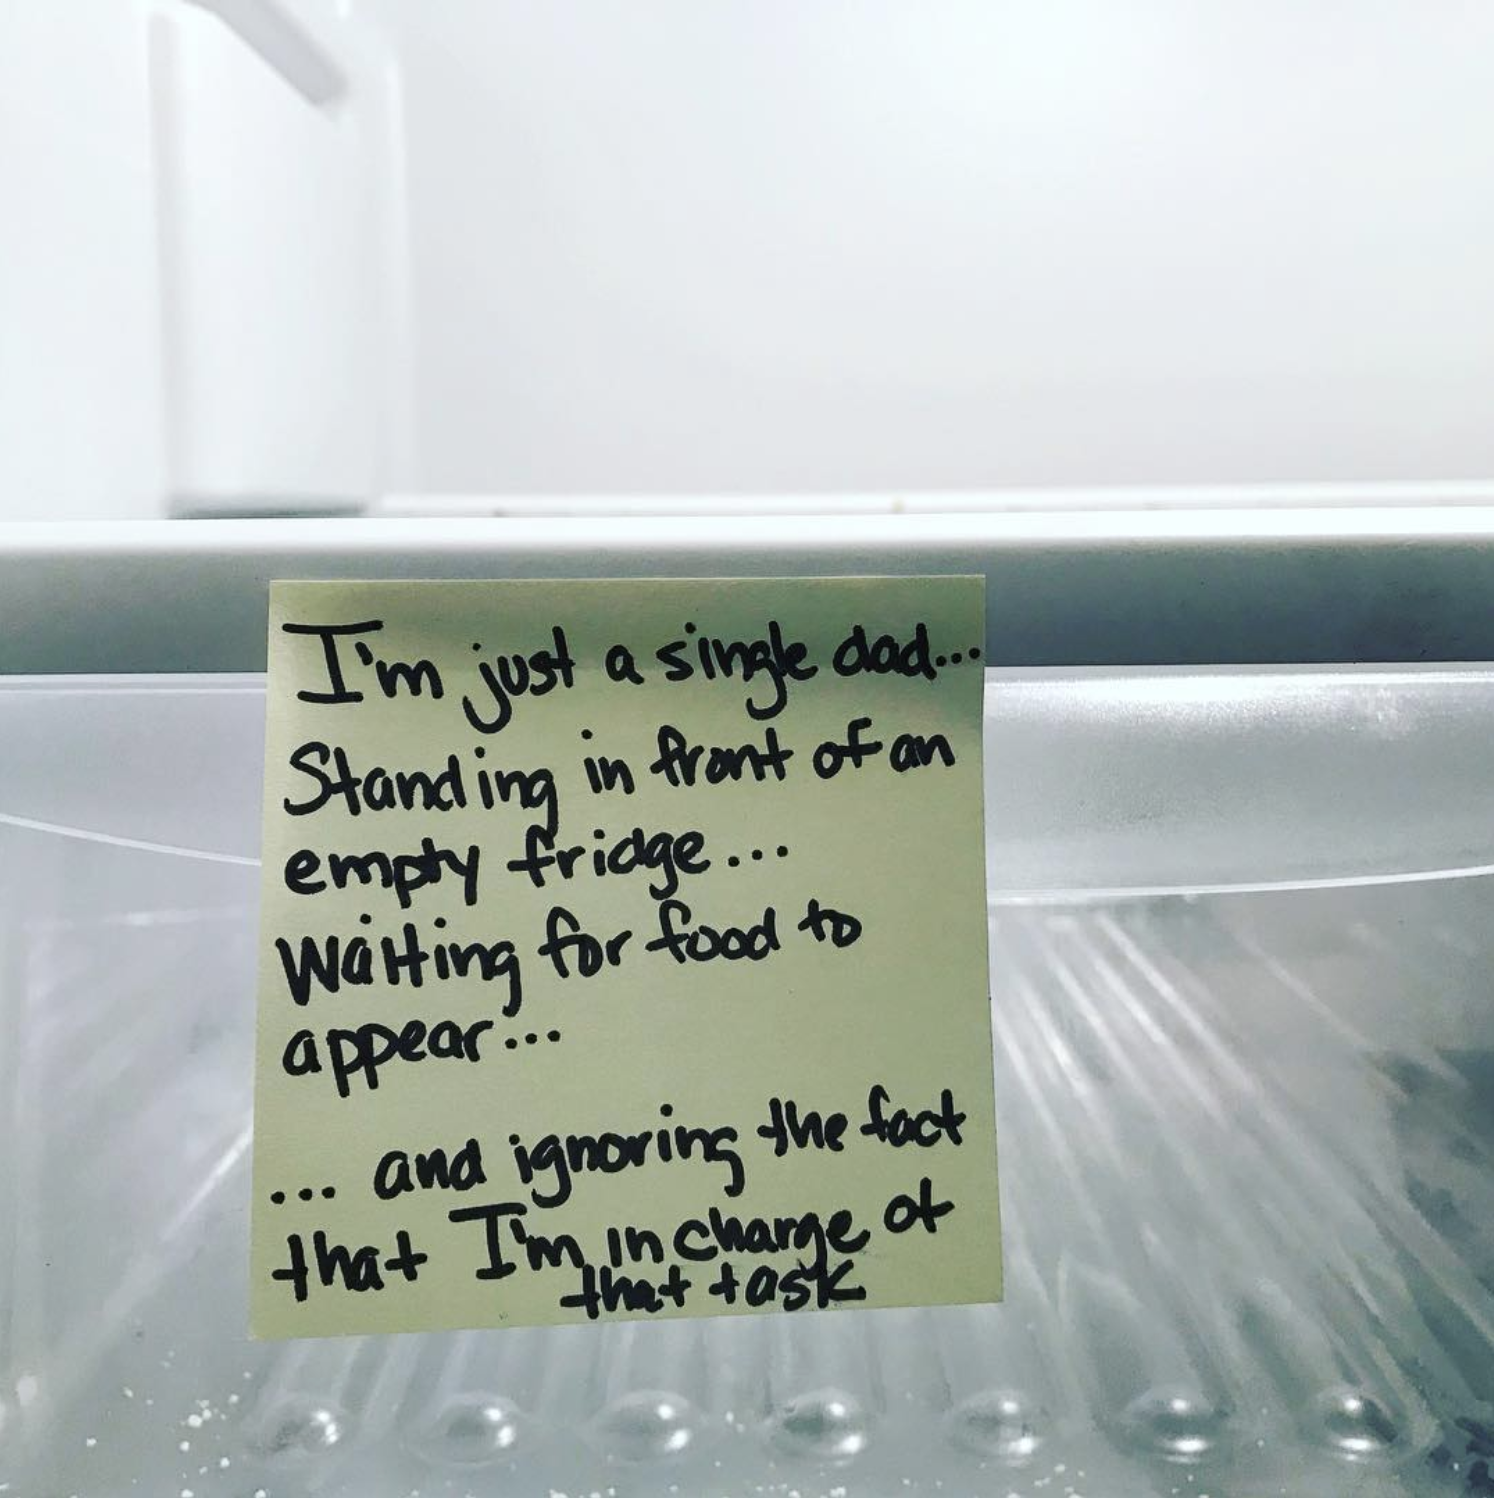 I'm just a single dad...
Standing in front of an
empty fridge...
Waiting for food to
appear...
... and ignoring the fact
that I'm in charge of
that task